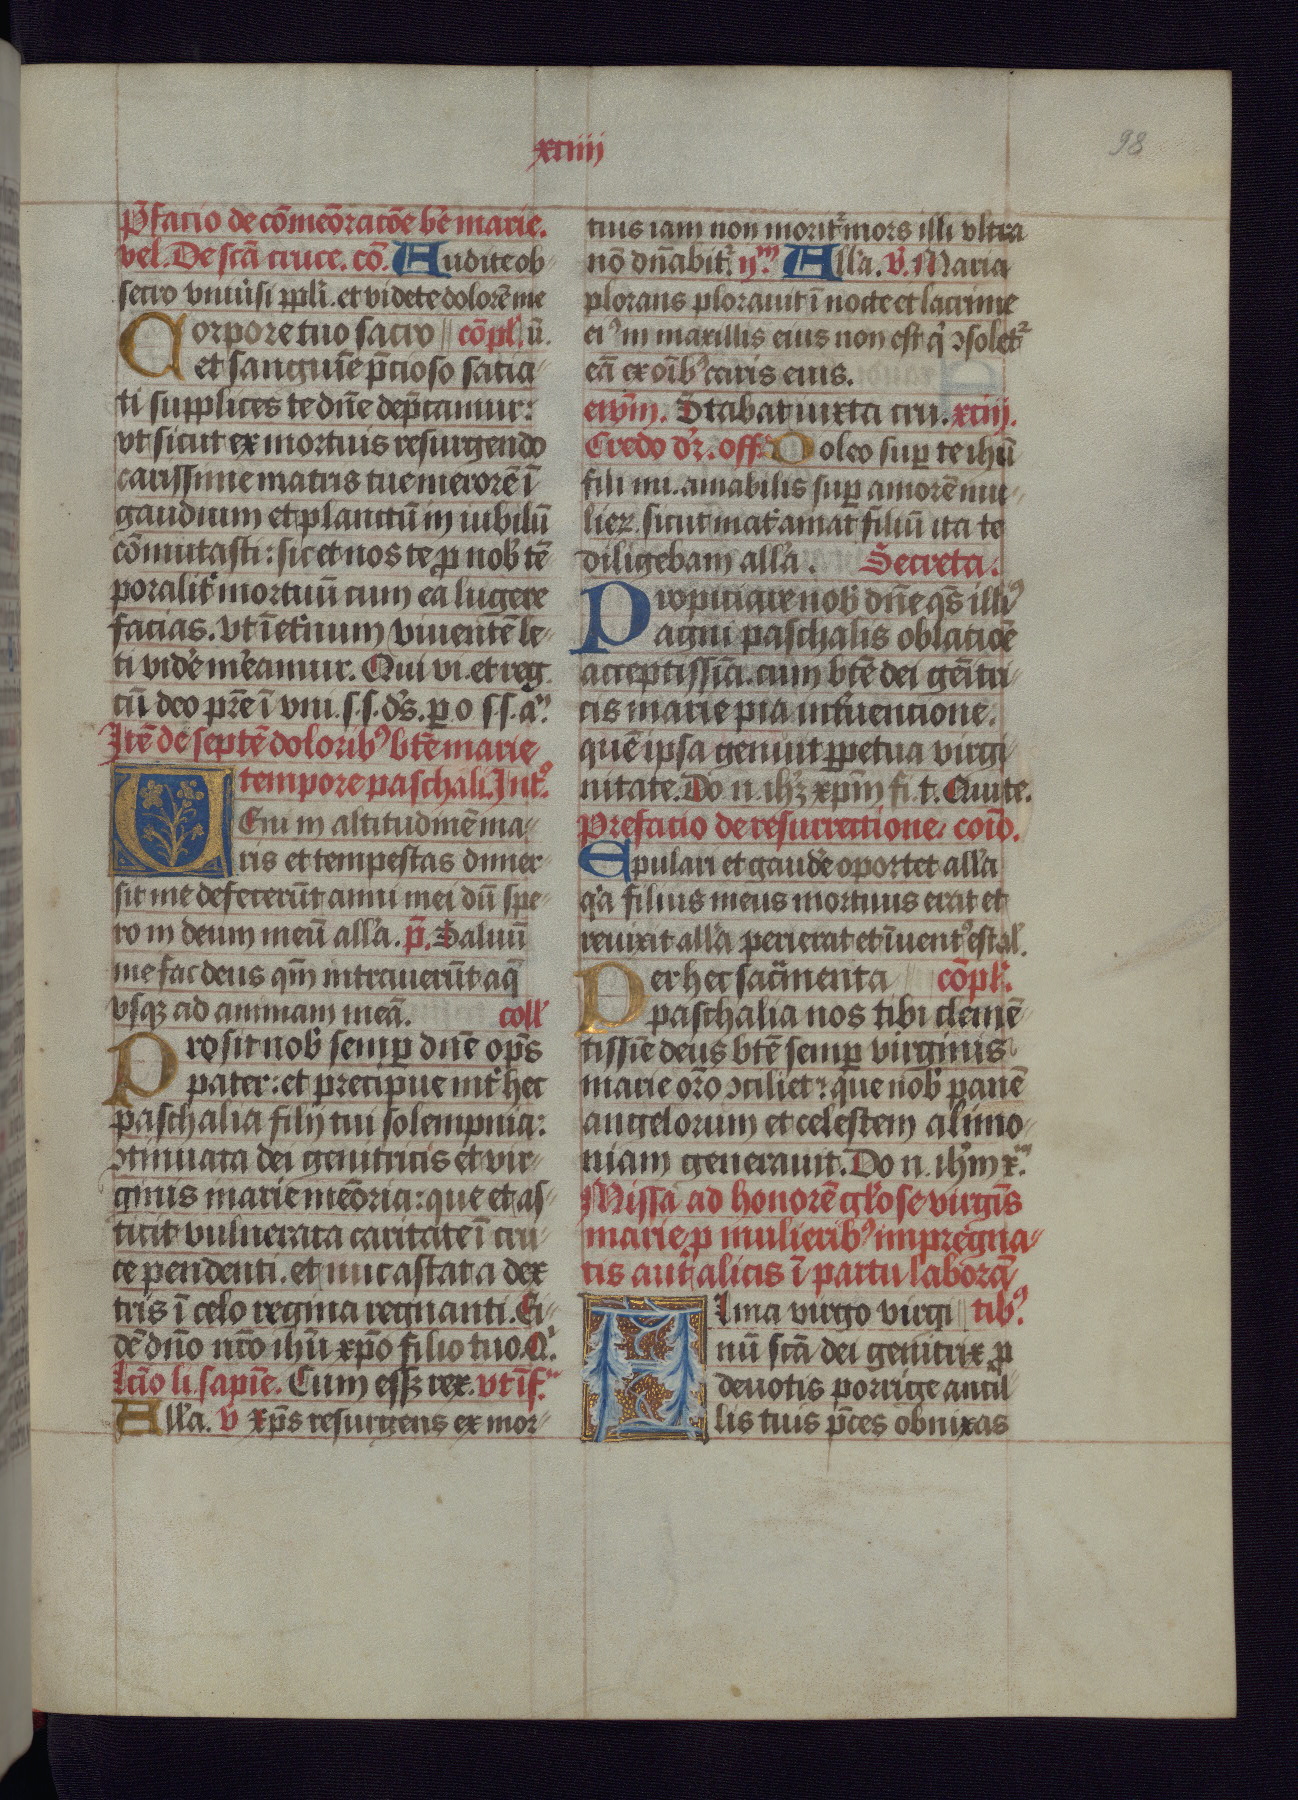 xciiij
98
p̄facio de cōmeōracōe bē marie.
vel. De scā cruce. cō. Audite ob
secro vniũsi ppl̃i. et videte dolorē me
Corpore tuo sacro cōpl̃. ũ.
et sanguīe p̄cioso sacia-
ti supplices te dn̄e dep̄camur:
vt sicut ex mortuis resurgendo
carissime matris tue merorē ī
gaudium et planctū in iubilū
cōmutasti: sic et nos te ꝓ nob̄ tē
poralit̃ mortuū cum ea lugere
facias. vt ī et̃num viuentē le-
ti vidẽ mẽamur. Qui vi. et reg.
cū deo pr̄e ī vni. s. s. d̃s. ꝑ. o s. s. aᵐ.
Itē de septē dolorib⁹ btē marie
tempore paschali. Int⁹.
Ueni in altitudinē ma-
ris et tempestas dimer-
sit me defecerūt animi mei dū spe-
ro in deum meū all̃a. p̄. Saluū
me fac deus qm̄ intrauerūt aq̄
vsqꝫ ad animam meā. coll̃
Prosit nob̃ semꝑ dn̄e op̄s
pater: et precipue int̃ hec
paschalia filij tui solempnia:
ↄtinuata dei genitricis et vir-
ginis marie meōria: que et as-
titit vulnerata caritate ī cru-
ce pendenti. et nūc astat a dex
tris ī celo regina regnanti. Ei-
dē dn̄o nr̄o ihū xp̄o filio tuo. Q.
Lc̄io li. sapīe. Cum essꝫ rex. vt īf.
All̃a. v̄ Xp̄s resurgens ex mor-
tuis iam non morit̃ mors illi vltra
nō dn̄abit̃. ijᵐ All̃a. V̄. Maria
plorans plorauit ī nocte et lacrime
ei⁹ in maxillis eius non est q̃ ↄsolet̃
eā ex oīb⁹ caris eius.
ewm̄. Stabat iuxta cru. xciij.
Credo dr̄. off. Doleo suꝑ te ihū
fili mi. amabilis suꝑ amorē mu-
lieꝝ. sicut mat̃ amat filiū ita te
diligebam all̃a. Secreta.
Propiciare nob̃ dn̄e q̄s illi⁹
agni paschalis oblacōe
acceptissīa. cum btē dei gēitri-
cis marie pia int̃uencione.
quē ipsa genuit ꝑpetua virgi-
nitate. Do. n. ihꝫ xp̄m fi. t. Qui te.
Prefacio de resurrectione. coīo.
Epulari et gaudẽ oportet all̃a
q̃a filius meus mortuus erat et
reuixit all̃a perierat et īuent⁹ est al̃.
Per hec sac̃menta cōpl̃.
paschalia nos tibi clemē-
tissīe deus btē semꝑ virginis
marie or̄o ↄciliet: que nob̃ panē
angelorum et celestem alimo-
niam generauit. Do. n. ih̃m x̄.
Missa ad honorē gl̃ose virgīs
marie ꝓ mulierib⁹ impregna-
tis aut̃ alicis ī partu laborā
Alma virgo virgi tib⁹.
nū scā dei genitrix ꝓ
deuotis porrige ancil-
lis tuis p̄ces obnixas